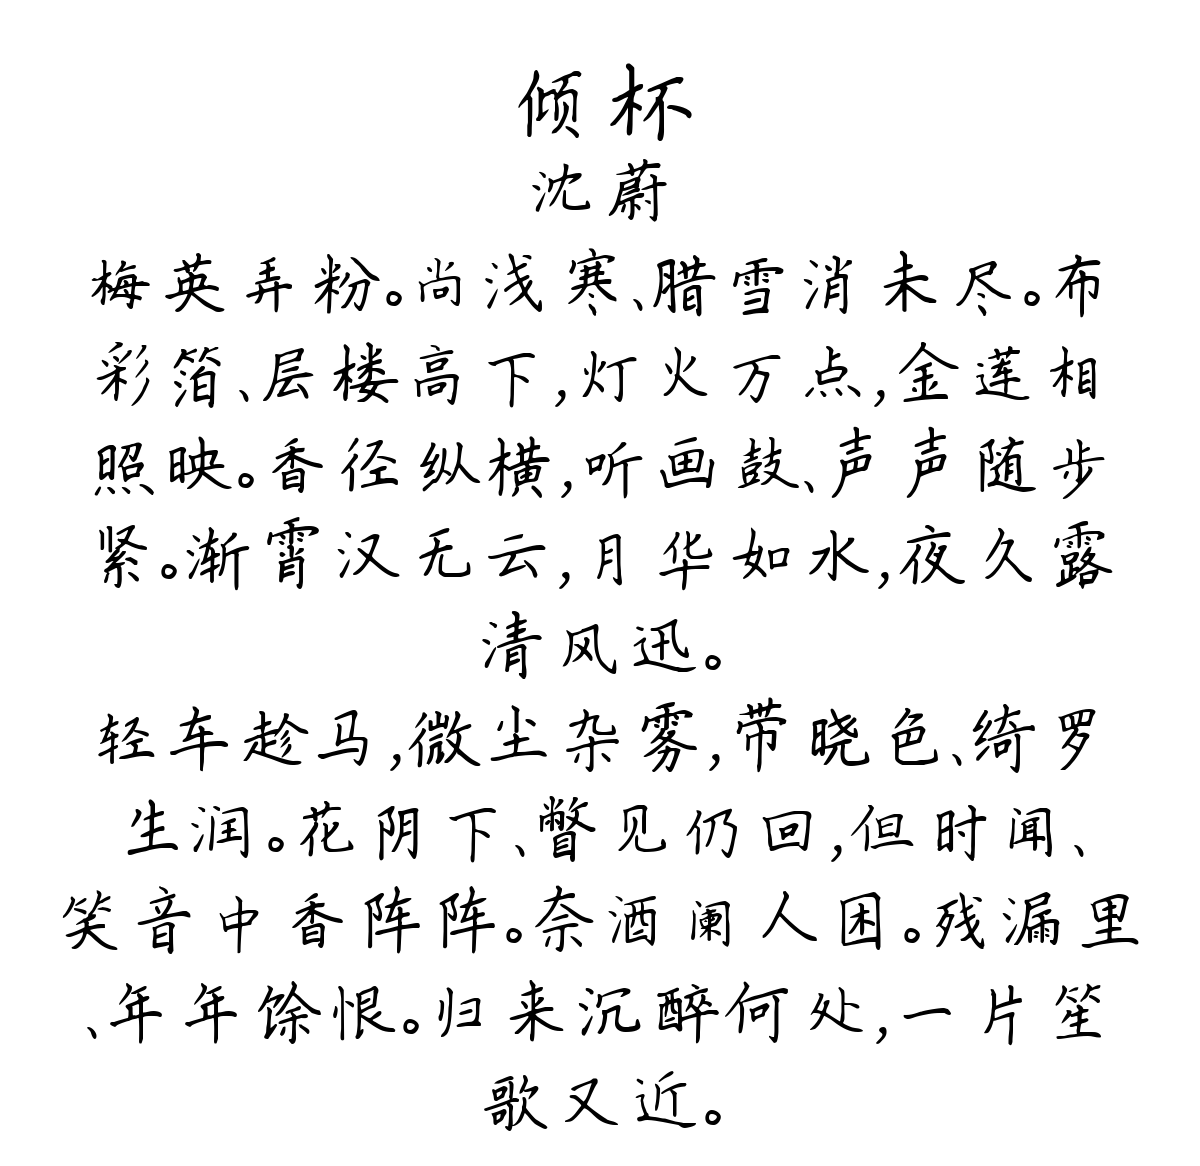 倾杯
沈蔚
梅英弄粉。尚浅寒、腊雪消未尽。布
彩箔、层楼高下,灯火万点,金莲相
照映。香径纵横,听画鼓、声声随步
紧。渐霄汉无云,月华如水,夜久露
清风迅。
轻车趁马,微尘杂雾,带晓色、绮罗
生润。花阴下、瞥见仍回,但时闻、
笑音中香阵阵。奈酒阑人困。残漏里
、年年馀恨。归来沉醉何处,一片笙
歌又近。